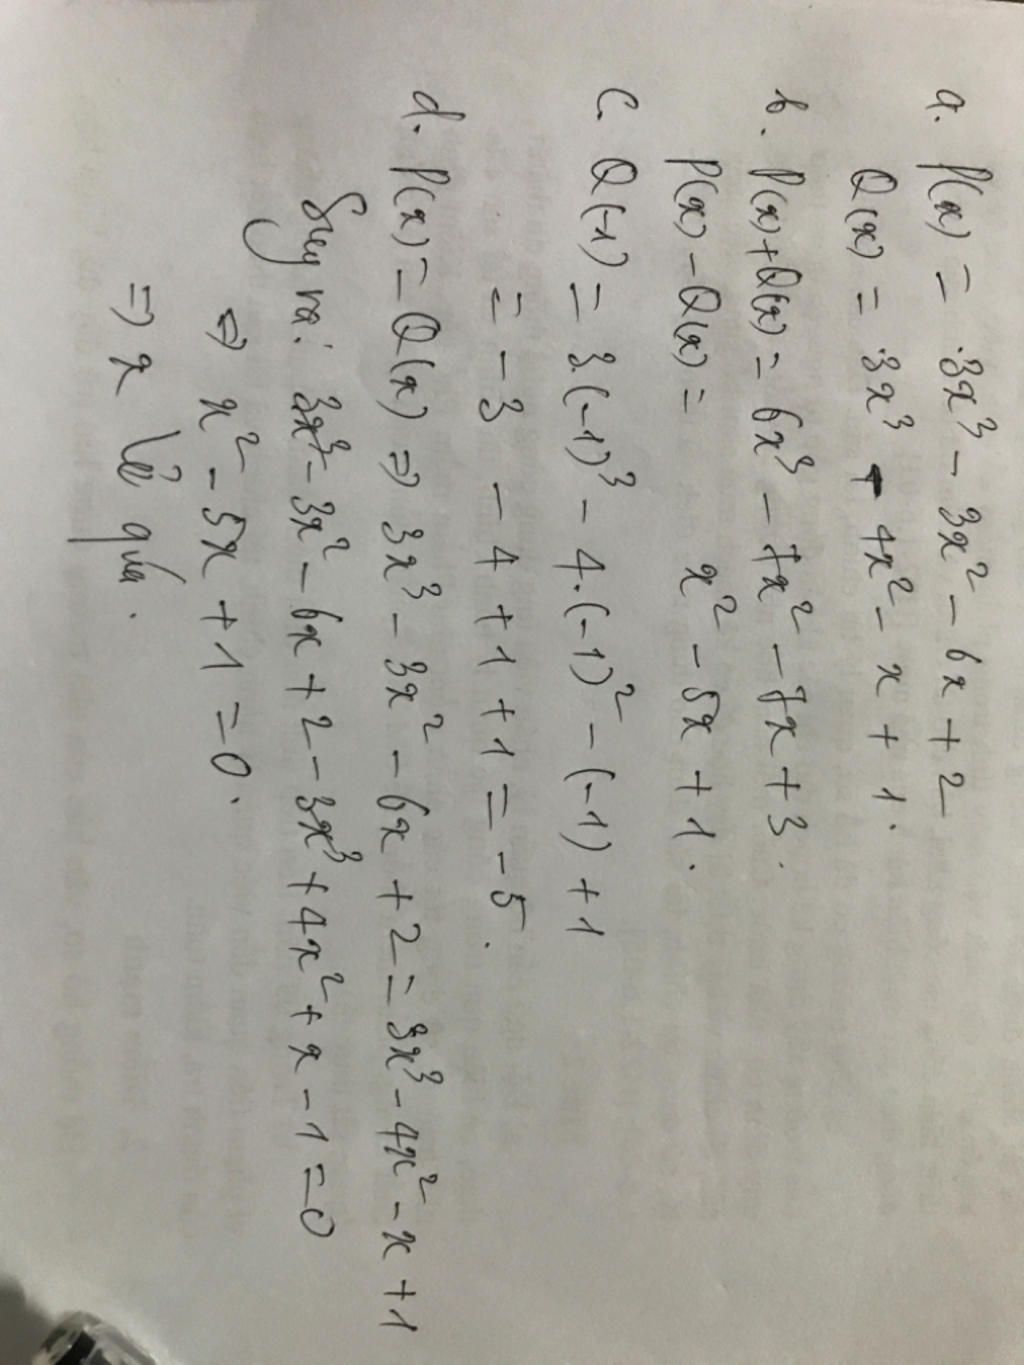 a. P(x) = 3x³ - 3x² - 6x + 2
Q(x) = 3x³ - 4x² - x + 1.
b. P(x) + Q(x) = 6x³ - 7x² - 7x + 3.
P(x) - Q(x) = x² - 5x + 1.
c. Q(-1) = 3.(-1)³ - 4.(-1)² - (-1) + 1
= -3 - 4 + 1 + 1 = -5.
d. P(x) = Q(x) => 3x³ - 3x² - 6x + 2 = 3x³ - 4x² - x + 1
Suy ra: 3x³ - 3x² - 6x + 2 - 3x³ + 4x² + x - 1 = 0
=> x² - 5x + 1 = 0.
=> x lẻ quá.